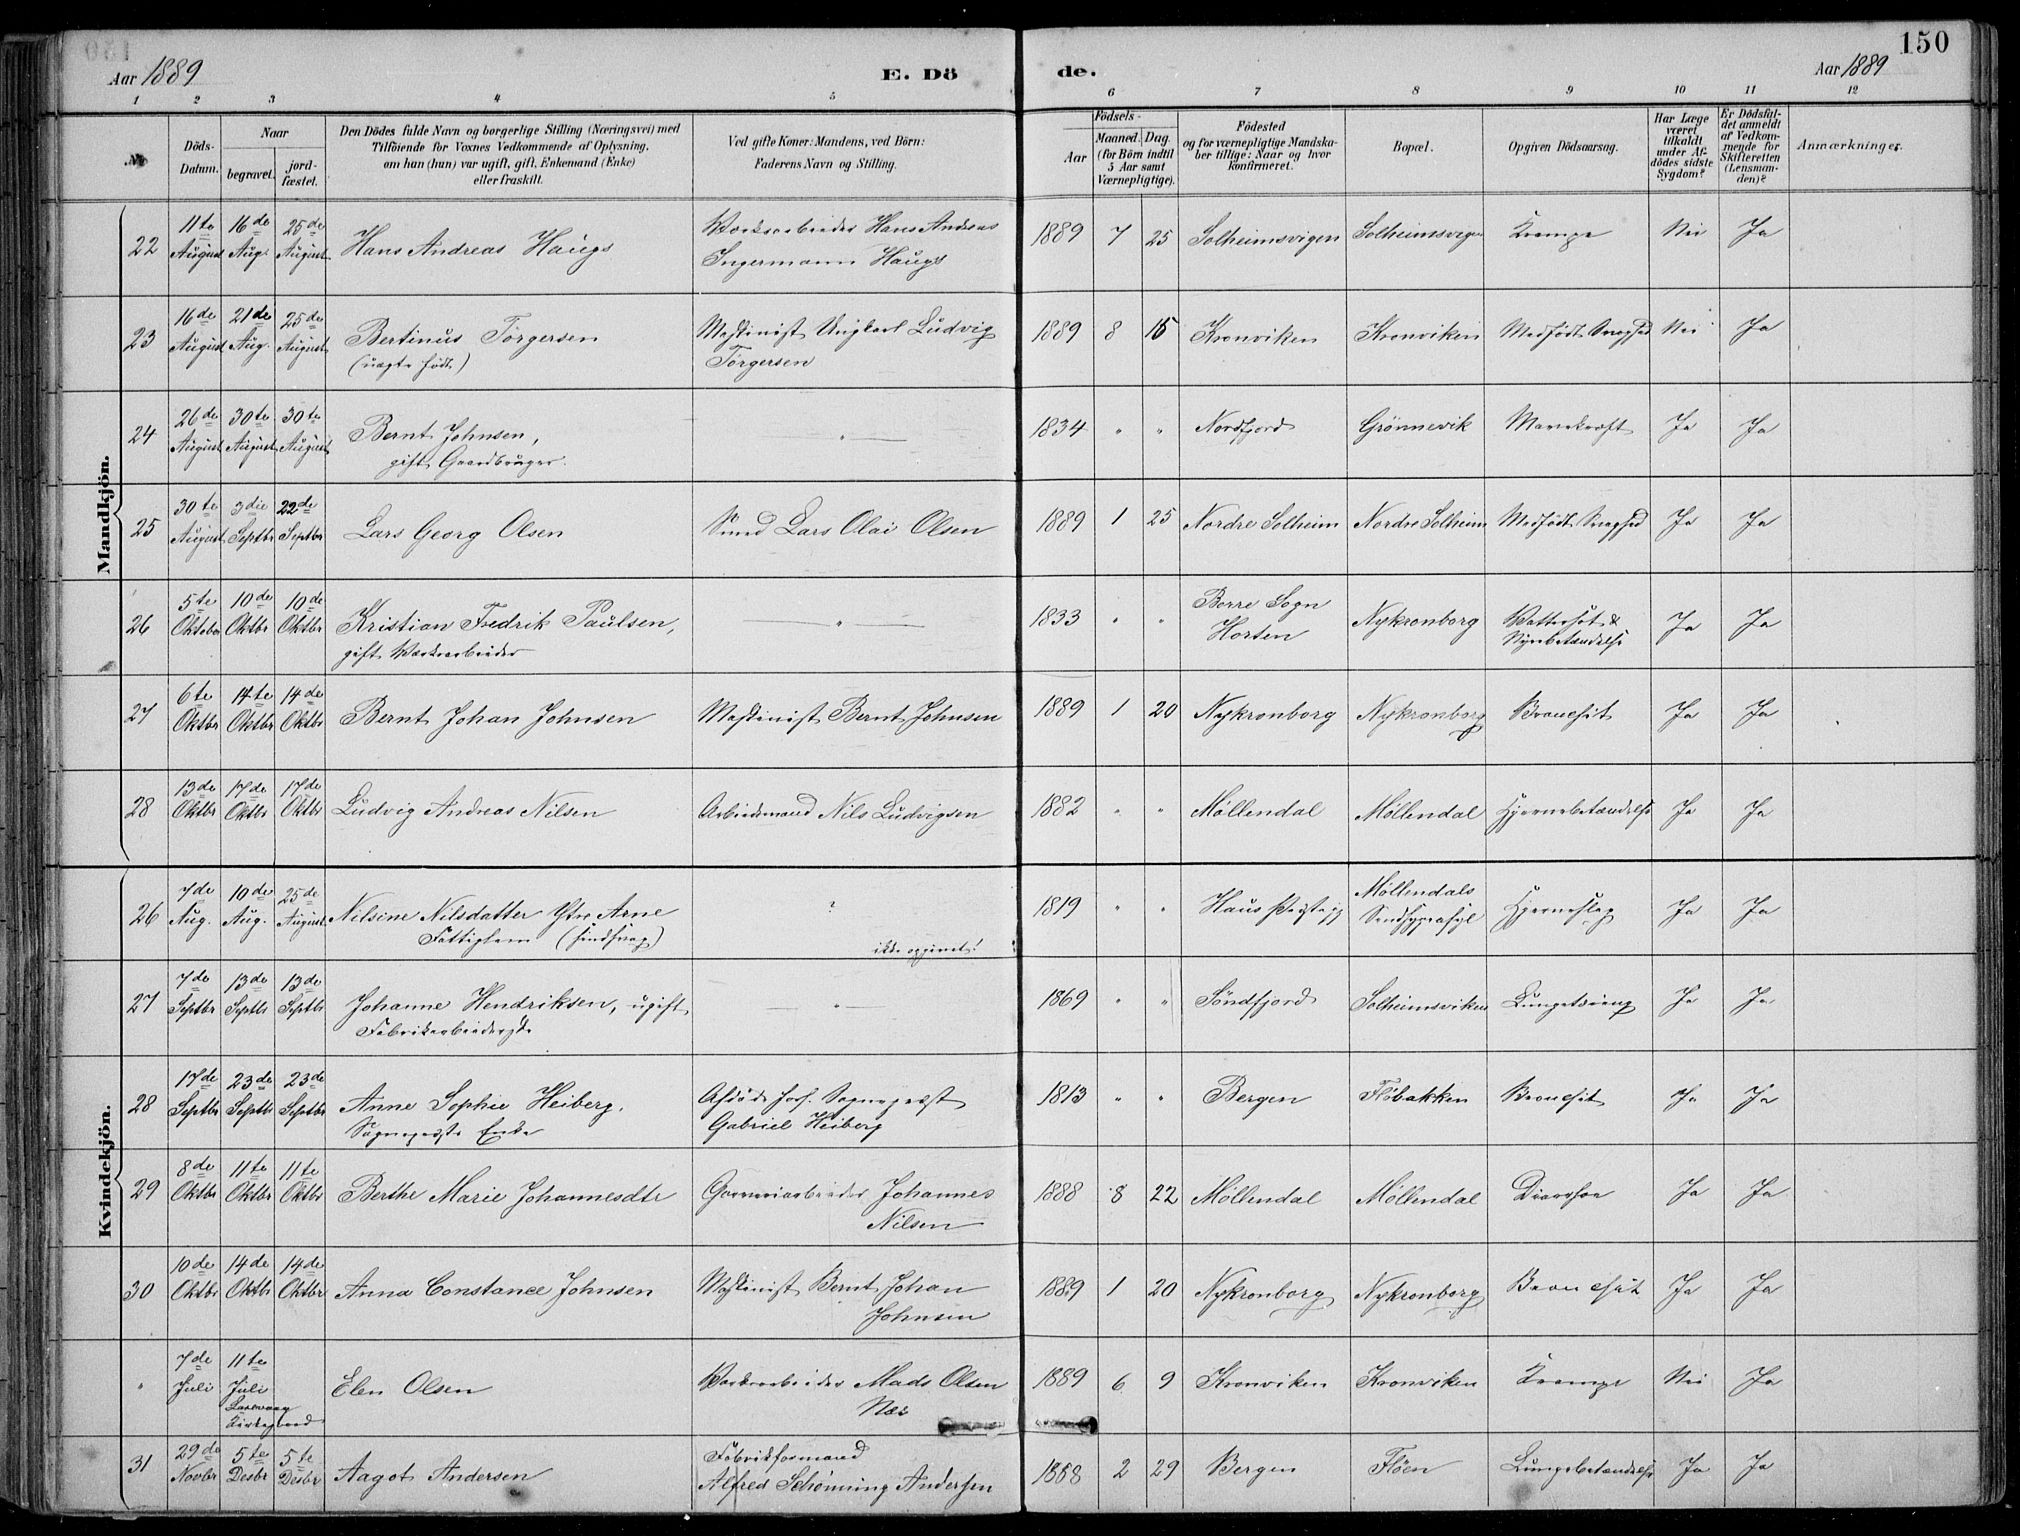 150
Aar 1889
E. Dö
de.
Aar 1889
1 2 3 4 5 6 7 8 9 10 11 12
No
Döds-
Datum.
Naar
begravet.
jord-
fæstet.
Den Dödes fulde Navn og borgerlige Stilling (Næringsvei) med
Tilföiende for Voxnes Vedkommende af Oplysning,
om han (hun) var ugift, gift, Enkemand (Enke)
eller fraskilt.
Ved gifte Koner: Mandens, ved Börn:
Faderens Navn og Stilling.
Födsels-
Aar
Maaned. Dag.
(for Börn indtil
5 Aar samt
Værnepligtige).
Födested
og for værnepligtige Mandska-
ber tillige: Naar og hvor
konfirmeret.
Bopæl.
Opgiven Dödsaarsag.
Har Læge
været
tilkaldt
under Af-
dödes sidste
Sygdom?
Er Dødsfal-
det anmeldt
af Vedkom-
mende for
Skifteretten
(Lensman-
den)?
Anmærkninger.
Mandkjön.
22 11te August 16de Aug. 25de August Hans Andreas Haugs Værksarbeider Hans Andreas
Ingermann Haugs 1889 7 25 Solheimsvigen Solheimsvigen Krampe Nei Ja
23 16de August 21de Aug. 25de August Bertinus Torgersen
(uægte født) Maskinist Ungkarl Ludvig
Torgersen 1889 8 15 Kronviken Kronviken Medfødt Svaghed Nei Ja
24 26de August 30te August 30te August Bernt Johnsen,
gift Gaardbruger. 1834 " " Nordfjord Grönnevik Mavekræft Ja Ja
25 30te August 3die Septbr 22de Septbr Lars Georg Olsen Smed Lars Olai Olsen 1889 1 25 Nordre Solheim Nordre Solheim Medfødt Svaghed Ja Ja
26 5te Oktober 10de Oktbr 10de Oktbr Kristian Fredrik Paulsen,
gift Værksarbeider 1833 " " Borre Sogn
Horten Nykronborg Vattersot &
Nyrebetændelse Ja Ja
27 6te Oktbr 14te Oktbr 14de Oktbr Bernt Johan Johnsen Maskinist Bernt Johnsen 1889 1 20 Nykronborg Nykronborg Bronchit Ja Ja
28 13de Oktbr 17de Oktbr 17de Oktbr Ludvig Andreas Nilsen Arbeidsmand Nils Ludvigsen 1882 " " Møllendal Møllendal Hjernebetændelse Ja Ja
Kvindekjön.
26 7de Aug. 10de Aug. 25de August Nilsine Nilsdatter Ytre Arne
Fattiglem (sindsvag) ?
ikke opgivet! 1819 " " Haus Møllendals
Sindsygeasyl Hjerneslag Ja Ja
27 7de Septbr 13de Septb 13de Septbr Johanne Hendriksen, ugift
Fabrikarbeiderske " 1869 " " Söndfjord Solheimsviken Lungetæring Ja Ja
28 17de Septbr 23de Septb 23de Septbr Anne Sophie Heiberg.
Sognepræsts Enke Afdøde forh. Sognepræst
Gabriel Heiberg 1813 " " Bergen Fløbakken Bronchit Ja Ja
29 8de Oktbr 11te Oktbr 11te Oktbr Berthe Marie Johannesdtr Garveriarbeider Johannes
Nilsen 1888 8 22 Møllendal Møllendal Diarrhoe Ja Ja
30 10de Oktbr 14de Oktbr 14de Oktbr Anna Constance Johnsen Maskinist Bernt Johan
Johnsen 1889 1 20 Nykronborg Nykronborg Bronchit Ja Ja
" 7de Juli 11te Juli
Laxevaag
Kirkegaard Elen Olsen Værksarbeider Mads Olsen
Næs 1889 6 9 Kronviken Kronviken Krampe Nei Ja
31 29de Novbr 5te Desbr 5te Desbr Aagot Andersen Fabrikformand
Alfred Schönning Andersen 1888 2 29 Bergen Fløen Lungebetændelse Ja Ja